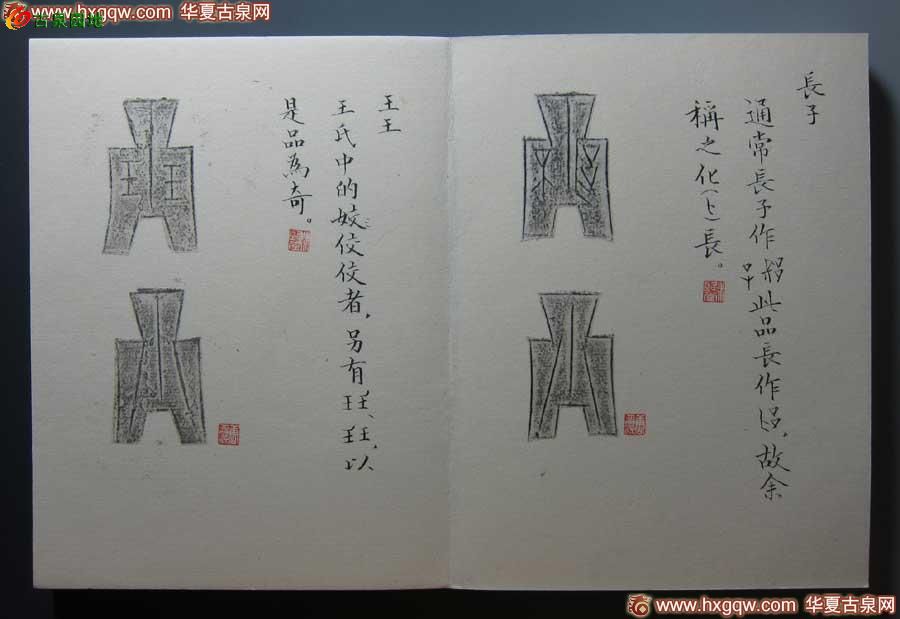 www.hxgqw.com 华夏古泉网
古泉园地
長子
通常長子作 此品長作 ，故余
稱之化（卜）長。
王王
王氏中的姣佼佼者，另有 、 ，以
是品為奇。
www.hxgqw.com 华夏古泉网